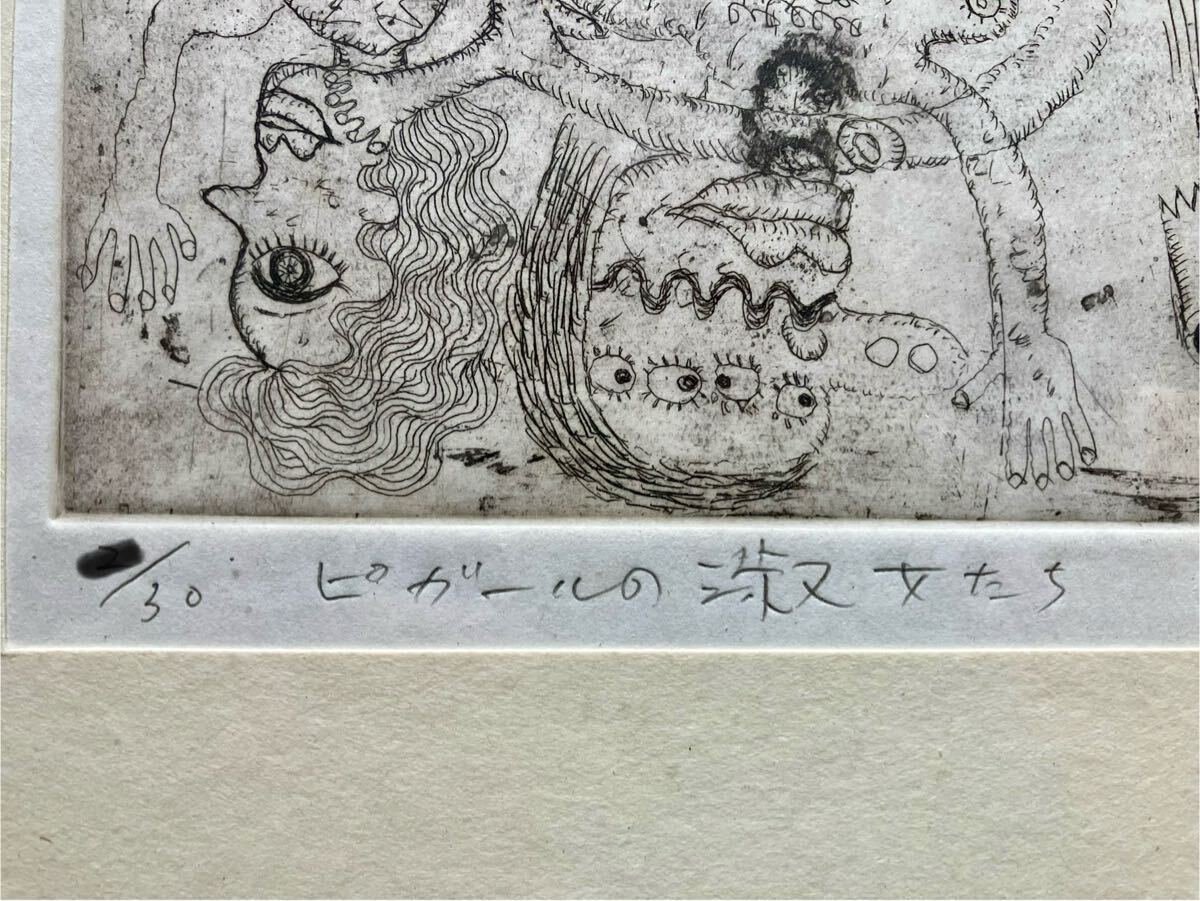 2/30 ピガールの淑女たち